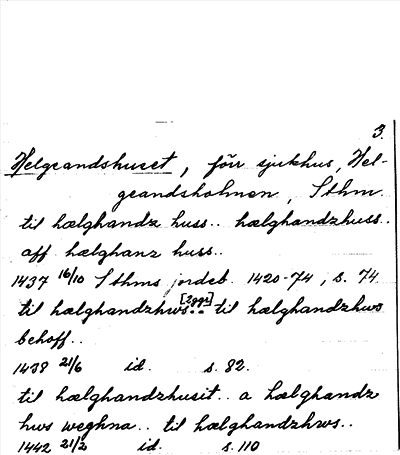 3.
Helgeandshuset, förr sjukhus, Hel-
geandsholmen, Sthm
til hælghandz huss.. hælghandzhuss..
aff hælghanz huss..
1437 16/10 Sthms jordeb. 1420-74, s. 74
til hælghandzhws.. [2 ggr] til hælghandzhws
behoff..
1438 21/6 id. s. 82.
til hælghandzhusit.. a hælghandz
hws weghna.. til hælghandzhws..
1442 21/2 id. s. 110